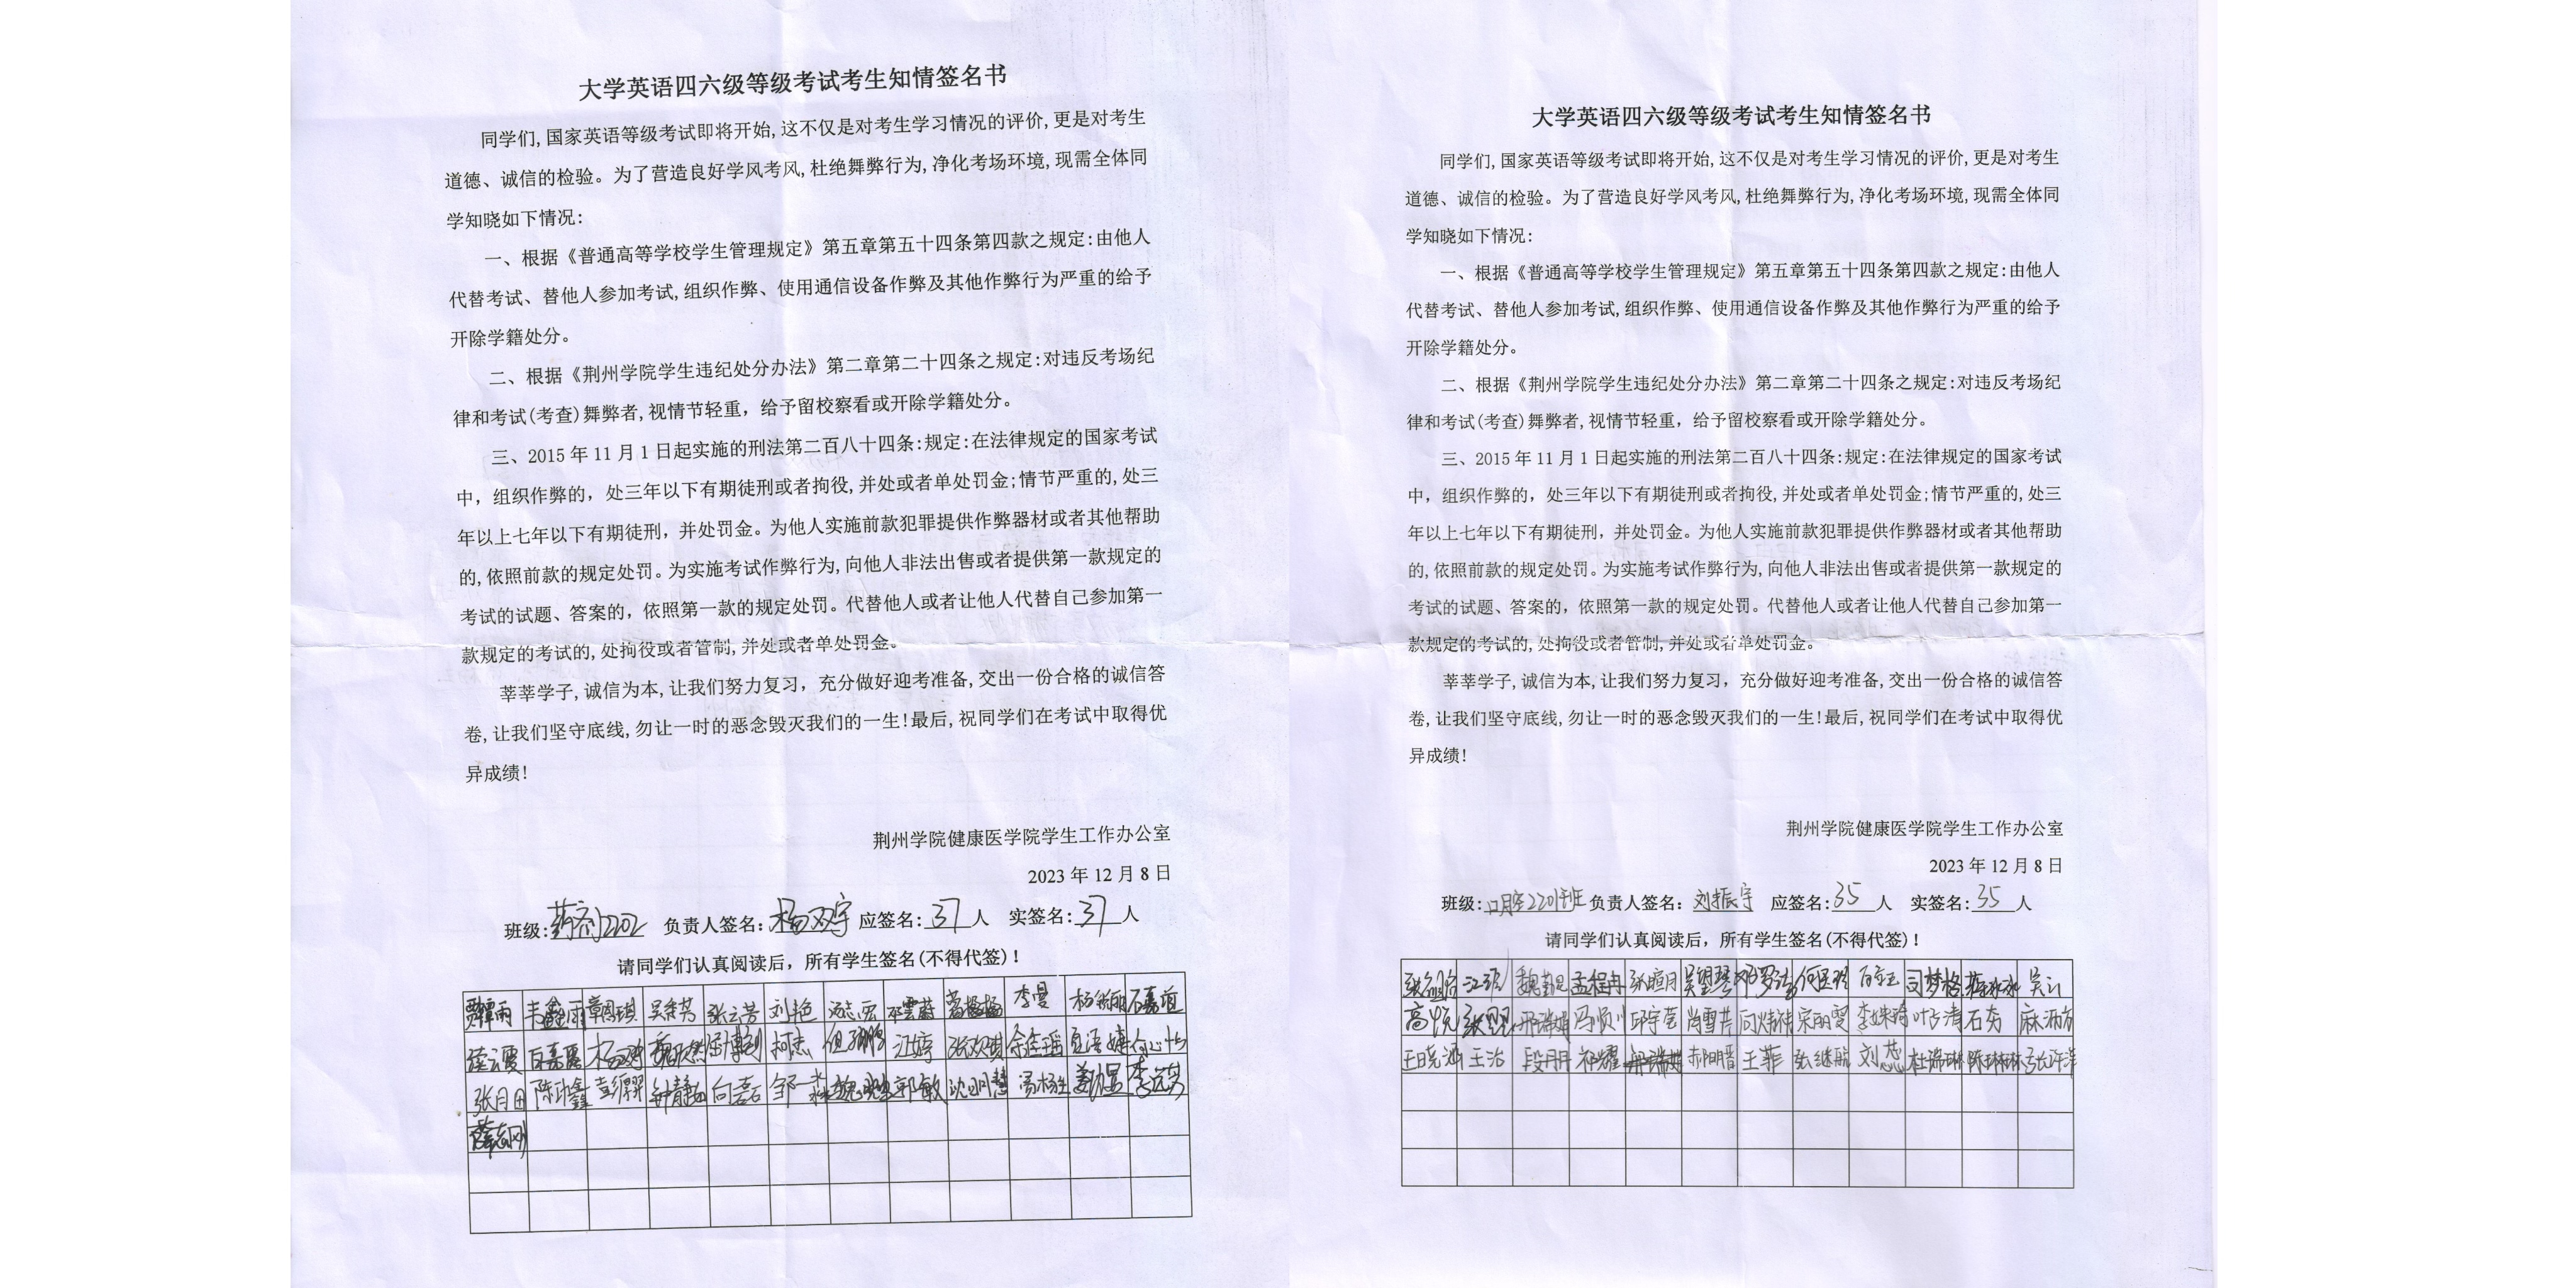 大学英语四六级等级考试考生知情签名书
同学们,国家英语等级考试即将开始,这不仅是对考生学习情况的评价,更是对考生
道德、诚信的检验。为了营造良好学风考风,杜绝舞弊行为,净化考场环境,现需全体同
学知晓如下情况:
一、根据《普通高等学校学生管理规定》第五章第五十四条第四款之规定:由他人
代替考试、替他人参加考试,组织作弊、使用通信设备作弊及其他作弊行为严重的给予
开除学籍处分。
二、根据《荆州学院学生违纪处分办法》第二章第二十四条之规定:对违反考场纪
律和考试(考查)舞弊者,视情节轻重，给予留校察看或开除学籍处分。
三、2015年11月1日起实施的刑法第二百八十四条:规定:在法律规定的国家考试
中，组织作弊的，处三年以下有期徒刑或者拘役,并处或者单处罚金;情节严重的,处三
年以上七年以下有期徒刑，并处罚金。为他人实施前款犯罪提供作弊器材或者其他帮助
的,依照前款的规定处罚。为实施考试作弊行为,向他人非法出售或者提供第一款规定的
考试的试题、答案的，依照第一款的规定处罚。代替他人或者让他人代替自己参加第一
款规定的考试的,处拘役或者管制,并处或者单处罚金。
莘莘学子,诚信为本,让我们努力复习，充分做好迎考准备,交出一份合格的诚信答
卷,让我们坚守底线,勿让一时的恶念毁灭我们的一生!最后,祝同学们在考试中取得优
异成绩!
荆州学院健康医学院学生工作办公室
2023年12月8日
班级:药剂2202 负责人签名:杨双宇 应签名:37人 实签名:37人
请同学们认真阅读后，所有学生签名(不得代签)!
吴金芳 张云芳 刘艳 李曼
柯杰 汪婷
张自田 钟静 向磊 郭敏
薛志刚
大学英语四六级等级考试考生知情签名书
同学们,国家英语等级考试即将开始,这不仅是对考生学习情况的评价,更是对考生
道德、诚信的检验。为了营造良好学风考风,杜绝舞弊行为,净化考场环境,现需全体同
学知晓如下情况:
一、根据《普通高等学校学生管理规定》第五章第五十四条第四款之规定:由他人
代替考试、替他人参加考试,组织作弊、使用通信设备作弊及其他作弊行为严重的给予
开除学籍处分。
二、根据《荆州学院学生违纪处分办法》第二章第二十四条之规定:对违反考场纪
律和考试(考查)舞弊者,视情节轻重，给予留校察看或开除学籍处分。
三、2015年11月1日起实施的刑法第二百八十四条:规定:在法律规定的国家考试
中，组织作弊的，处三年以下有期徒刑或者拘役,并处或者单处罚金;情节严重的,处三
年以上七年以下有期徒刑，并处罚金。为他人实施前款犯罪提供作弊器材或者其他帮助
的,依照前款的规定处罚。为实施考试作弊行为,向他人非法出售或者提供第一款规定的
考试的试题、答案的，依照第一款的规定处罚。代替他人或者让他人代替自己参加第一
款规定的考试的,处拘役或者管制,并处或者单处罚金。
莘莘学子,诚信为本,让我们努力复习，充分做好迎考准备,交出一份合格的诚信答
卷,让我们坚守底线,勿让一时的恶念毁灭我们的一生!最后,祝同学们在考试中取得优
异成绩!
荆州学院健康医学院学生工作办公室
2023年12月8日
班级: 负责人签名:刘振宇 应签名:35人 实签名:35人
请同学们认真阅读后，所有学生签名(不得代签)!
孟程冉 张暄月 吴望琴 司梦格
高悦 冯顺川 邱宇莹 肖雪芹 宋丽雯 叶子清 石芳
王晓涵 王治 段丹丹 祁耀 郝明晋 王菲 张继航 刘蕊 杜瑞琳 陈琳琳